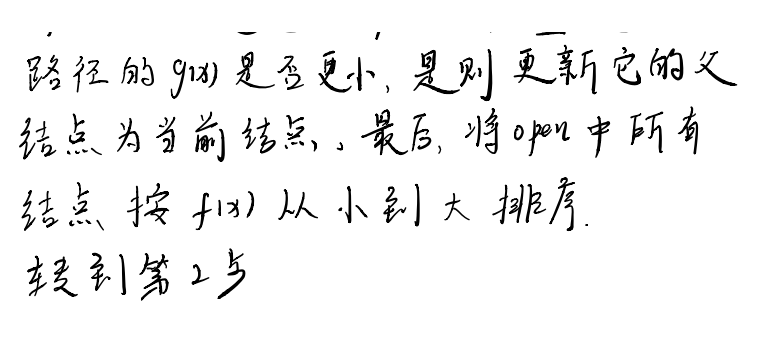 路径的g(x)是否更小,是则更新它的父
结点为当前结点,。最后,将open中所有
结点按f(x)从小到大排序.
转到第2步